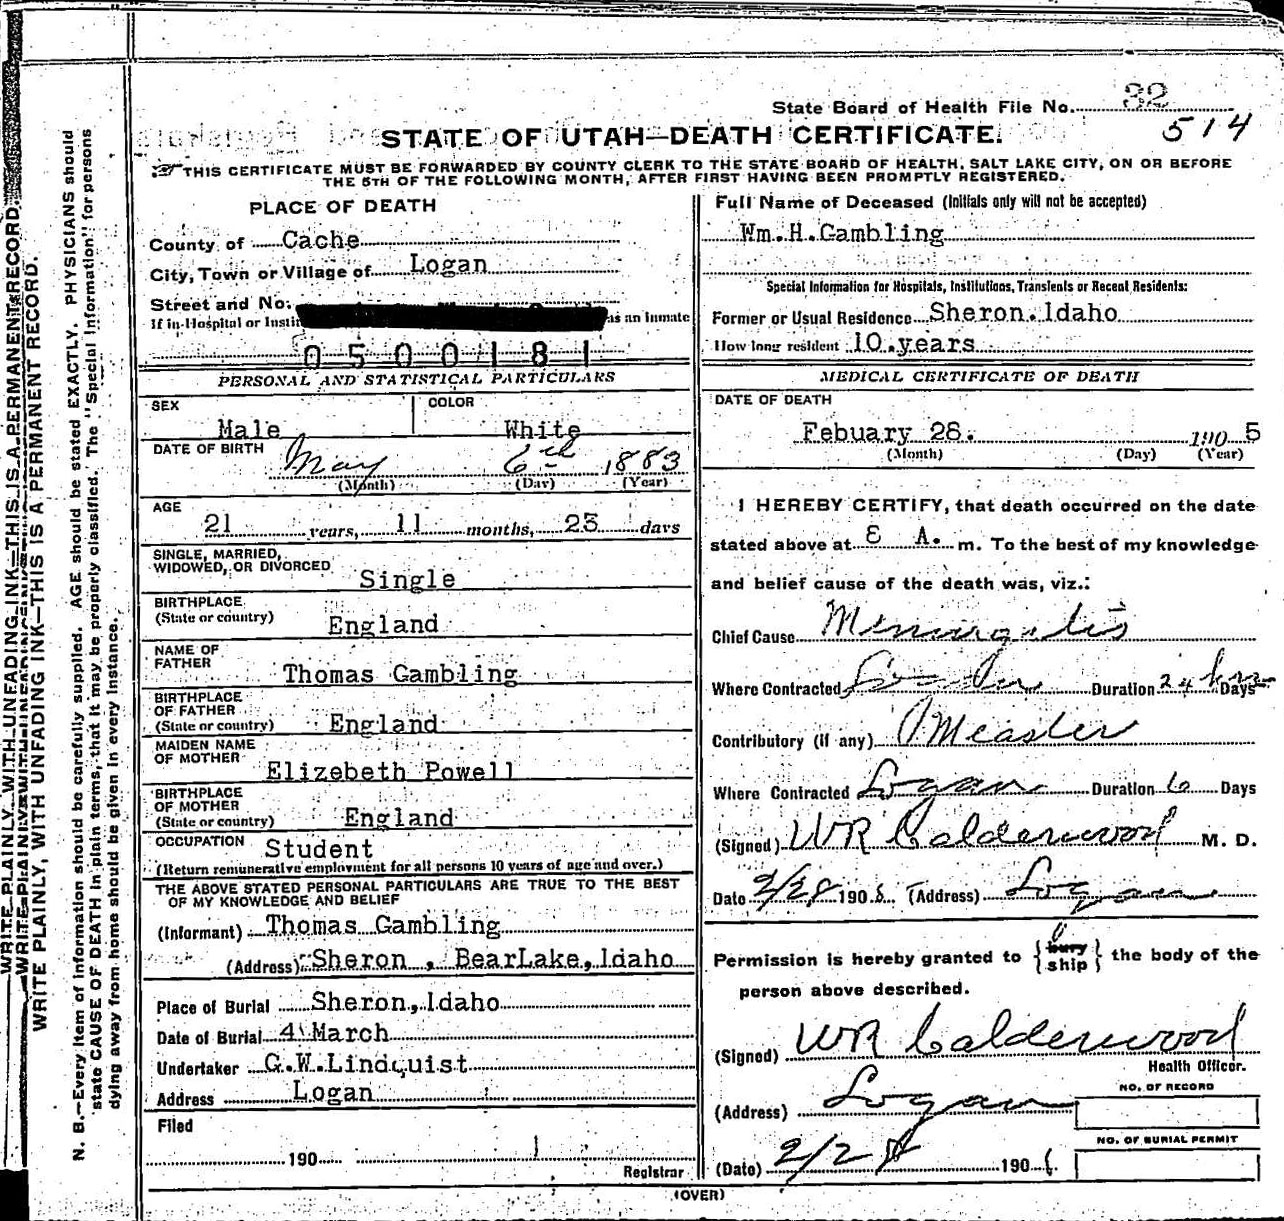 State Board of Health File No. 32
514
STATE OF UTAH—DEATH CERTIFICATE.
THIS CERTIFICATE MUST BE FORWARDED BY COUNTY CLERK TO THE STATE BOARD OF HEALTH, SALT LAKE CITY, ON OR BEFORE
THE 5TH OF THE FOLLOWING MONTH, AFTER FIRST HAVING BEEN PROMPTLY REGISTERED.
WRITE PLAINLY, WITH UNFADING INK—THIS IS A PERMANENT RECORD.
WRITE PLAINLY, WITH UNFADING INK—THIS IS A PERMANENT RECORD.
N. B.—Every item of information should be carefully supplied. AGE should be stated EXACTLY. PHYSICIANS should
state CAUSE OF DEATH in plain terms, that it may be properly classified. The "Special Information" for persons
dying away from home should be given in every instance.
PLACE OF DEATH
County of Cache
City, Town or Village of Logan
Street and No.
If in Hospital or as an inmate
0500181
PERSONAL AND STATISTICAL PARTICULARS
SEX
COLOR
Male White
DATE OF BIRTH May 6th 1883
(Month) (Day) (Year)
AGE
21 years, 11 months, 23 days
SINGLE, MARRIED,
WIDOWED, OR DIVORCED Single
BIRTHPLACE
(State or country) England
NAME OF
FATHER Thomas Gambling
BIRTHPLACE
OF FATHER
(State or country) England
MAIDEN NAME
OF MOTHER Elizebeth Powell
BIRTHPLACE
OF MOTHER
(State or country) England
OCCUPATION Student
(Return remunerative employment for all persons 10 years of age and over.)
THE ABOVE STATED PERSONAL PARTICULARS ARE TRUE TO THE BEST
OF MY KNOWLEDGE AND BELIEF
(Informant) Thomas Gambling
(Address) Sheron, BearLake, Idaho
Place of Burial Sheron, Idaho
Date of Burial 4 March
Undertaker G.W.Lindquist
Address Logan
Filed
190
Registrar
Full Name of Deceased (Initials only will not be accepted)
Wm.H.Gambling
Special Information for Hospitals, Institutions, Transients or Recent Residents:
Former or Usual Residence Sheron. Idaho
How long resident 10.years
MEDICAL CERTIFICATE OF DEATH
DATE OF DEATH
Febuary 28. 190 5
(Month) (Day) (Year)
I HEREBY CERTIFY, that death occurred on the date
stated above at 8 A. m. To the best of my knowledge
and belief cause of the death was, viz.:
Chief Cause Meningitis
Where Contracted Duration 24 hrs Days
Contributory (if any) Measles
Where Contracted Logan Duration 6 Days
(Signed) WR Calderwood M. D.
Date 2/28 190 5 (Address) Logan
Permission is hereby granted to { bury ship } the body of the
person above described.
(Signed) WR Calderwood
Health Officer.
(Address) Logan
NO. OF RECORD
NO. OF BURIAL PERMIT
(Date) 2/28 190
(OVER)